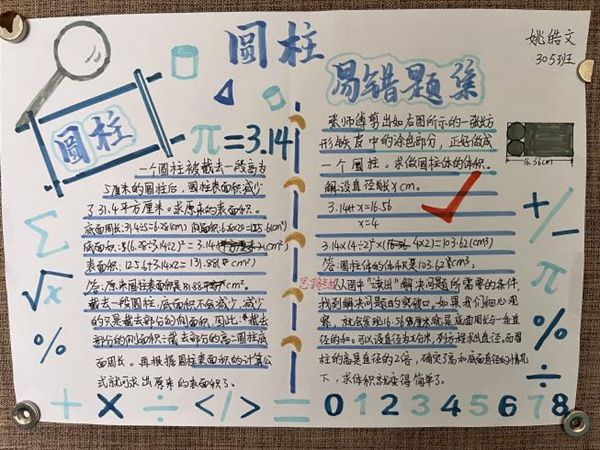 圆柱
易错题集
姚皓文
305班
圆柱
π=3.14
一个圆柱被截去一段高为
5厘米的圆柱后,圆柱表面积减少
了31.4平方厘米。求原来的表面积。
底面周长:31.4÷5=6.28(cm)
表面积:125.6+3.14×2=131.88(cm²)
答:原来圆柱表面积是131.88cm²。
截去一段圆柱,底面积不会减少,减少
的只是截去部分的侧面积,因此:截去
部分的侧面积÷截去部分的高=圆柱底
面周长。再根据圆柱表面积的计算公
式就可求出原来的表面积了。
张师傅剪出如右图所示的一张长方
形铁皮中的涂色部分,正好做成
一个圆柱。求做圆柱体的体积。
16.56cm
解:设直径为xcm。
3.14x+x=16.56
x=4
3.14×(4÷2)²×(4×2)=103.62(cm³)
答:圆柱体的体积是103.62cm³。
思路
从图中"读出"解决问题所需要的条件,
找到解决问题的突破口。如果我们细心观
察,就会发现16.56厘米就是底面周长与一条直
径的和。可以设直径为x分米,列方程求出直径,而圆
柱的高是直径的2倍,确定了高和底面直径的情况
下,求体积就变得简单了。
Σ
√x
%
+ - π % ÷
+ × ÷ </> = 0 1 2 3 4 5 6 7 8